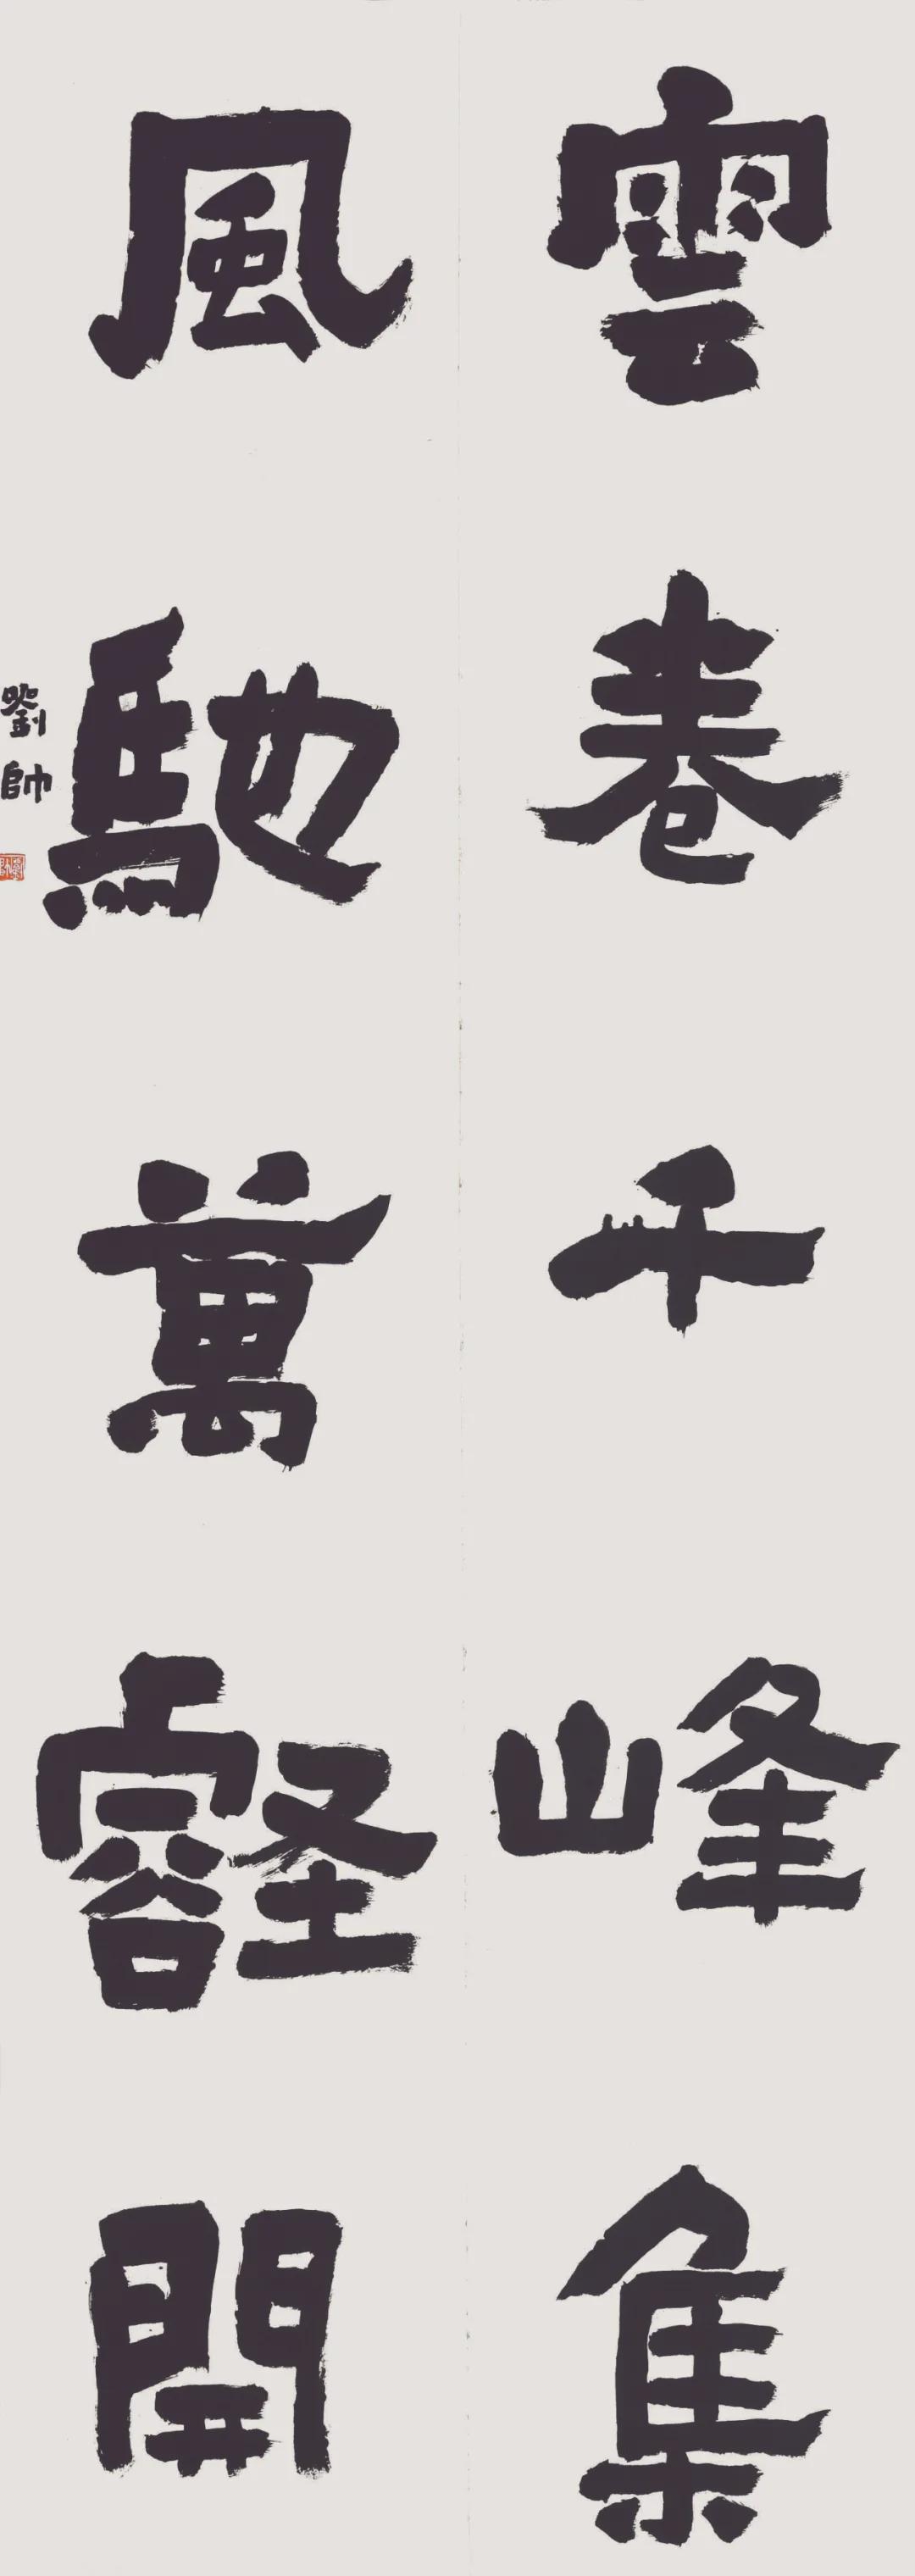 雲卷千峰集
風馳萬壑開
劉帥